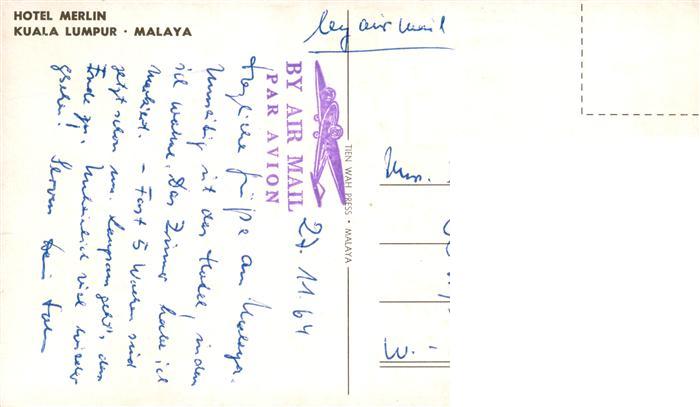 HOTEL MERLIN
KUALA LUMPUR · MALAYA
by air mail
BY AIR MAIL
PAR AVION
TIEN WAH PRESS · MALAYA
27.11.64
Herzliche Grüße aus Malaya.
Umseitig ist das Hotel, in dem
ich wohne. Das Zimmer habe ich
markiert. – Fast 5 Wochen sind
jetzt schon um. Langsam geht's dem
Ende zu. Unheimlich viel
gesehen! Servus Dein
Mrs.
W. –